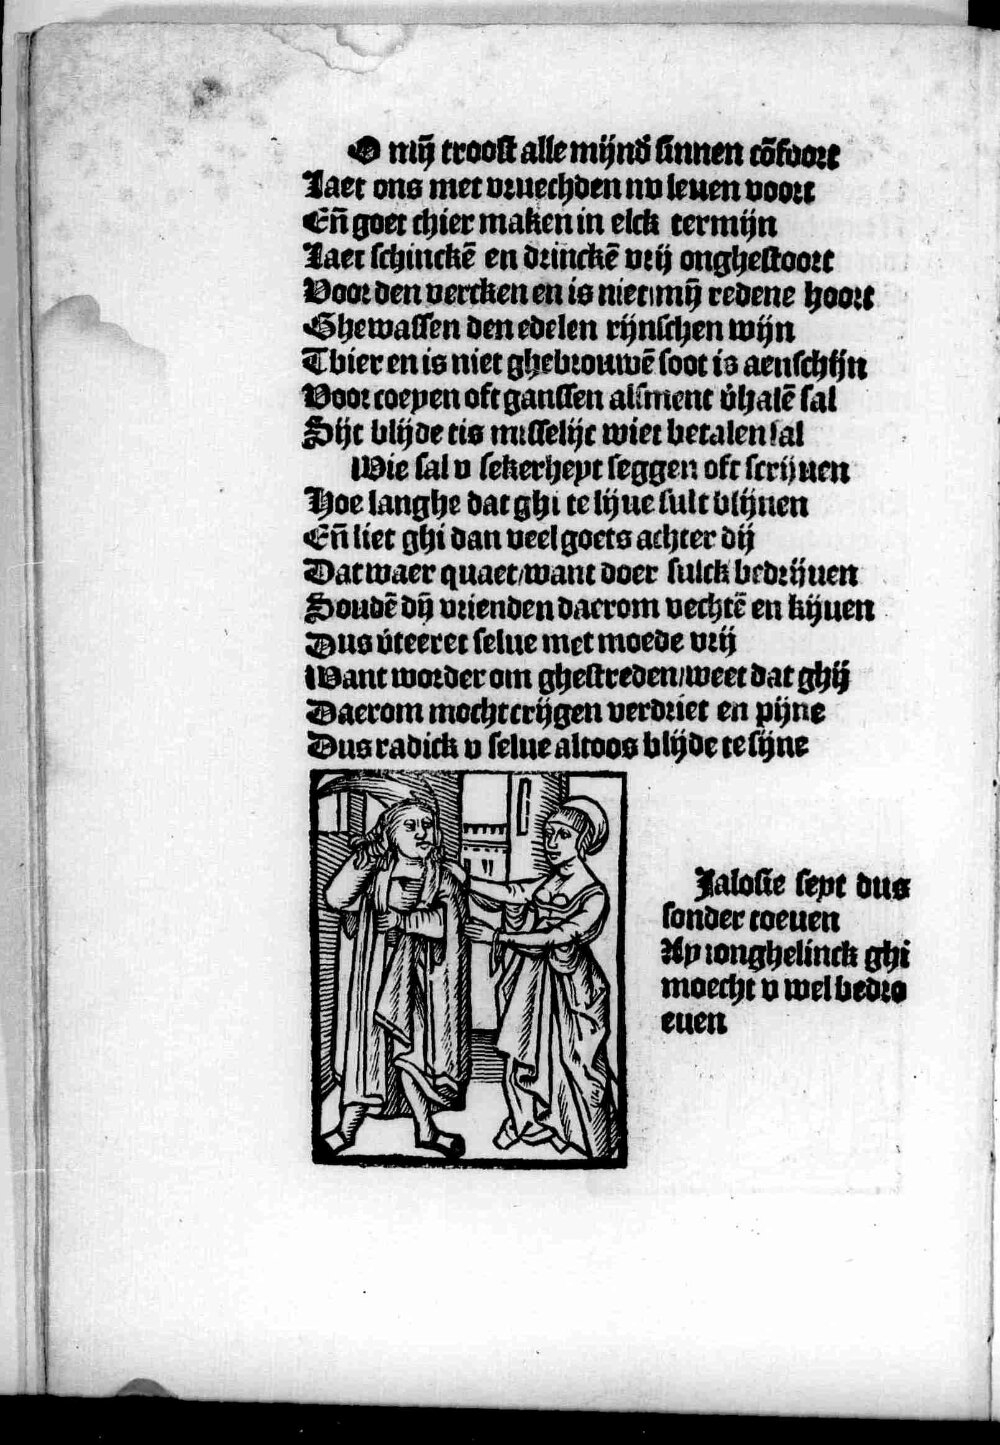 O mijn̄ troost alle mijnd̉ sinnen cōfoort
Laet ons met vruechden nv leuen voort
Eñ goet chier maken in elck termijn
Laet schinckē en drinckē vrij onghestoort
Voor den vercken en is niet/mijn̄ redene hoort
Ghewassen den edelen rijnschen wijn
Tbier en is niet ghebrouwē soot is aenschijn
Voor coeyen oft ganssen alsment v̉halē sal
Sijt blijde tis misselijc wiet betalen sal
Wie sal v sekerheyt seggen oft scrijuen
Hoe langhe dat ghi te lijue sult blijuen
Eñ liet ghi dan veel goets achter dij
Dat waer quaet/want doer sulck bedrijuen
Soudē dijn̄ vrienden daerom vechtē en kijuen
Dus v̉teeret selue met moede vrij
Want worder om ghestreden/weet dat ghij
Daerom mocht crijgen verdriet en pijne
Dus radick v selue altoos blijde te sijne
Jalosie seyt dus
sonder toeuen
Ay ionghelinck ghi
moecht v wel bedro
euen